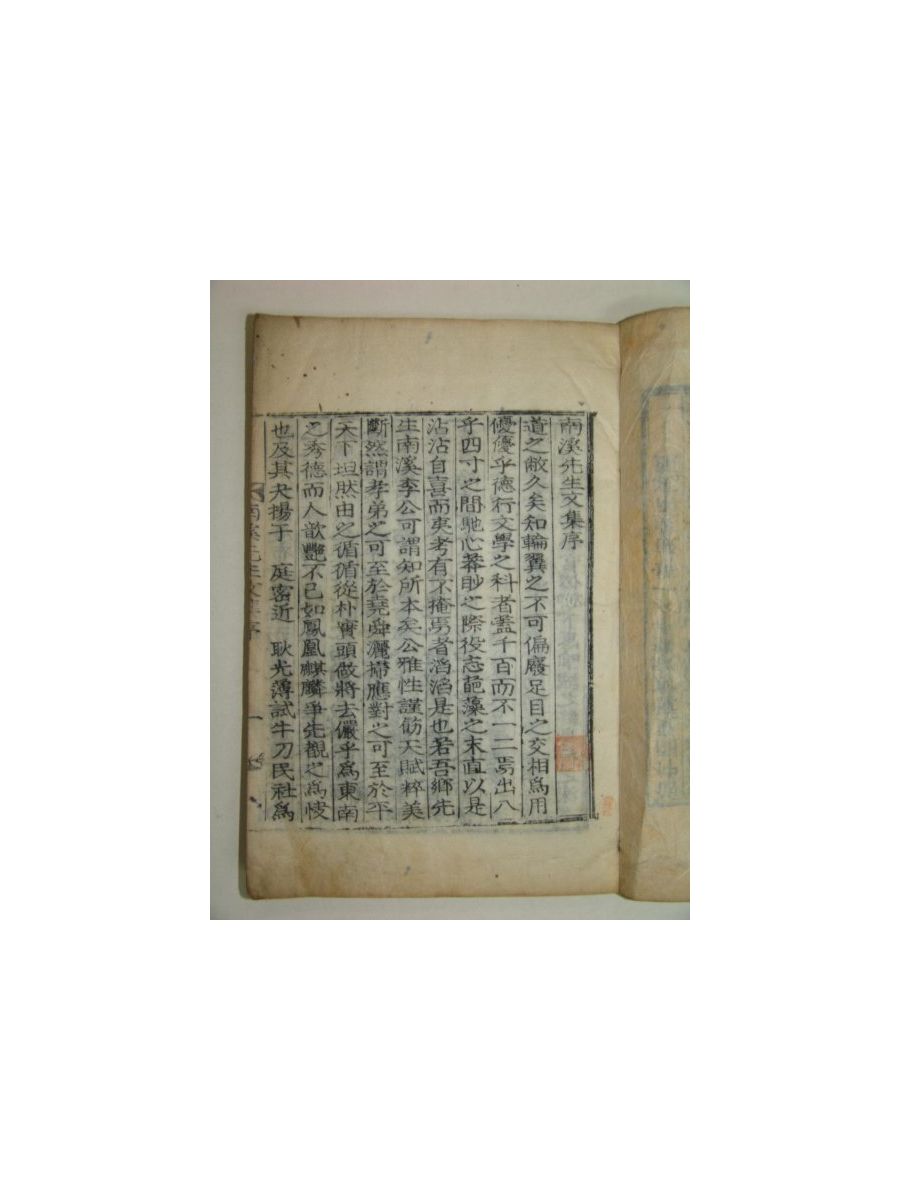 南溪先生文集序
道之敝久矣知輪翼之不可偏廢足目之交相爲用
優優乎德行文學之科者盖千百而不一二焉出入
乎四寸之間馳心莽眇之際役志葩藻之末直以是
沾沾自喜而夷考有不掩焉者滔滔是也若吾鄕先
生南溪李公可謂知所本矣公雅性謹飭天賦粹美
斷然謂孝弟之可至於堯舜灑掃應對之可至於平
天下坦然由之循循從朴實頭做將去儼乎爲東南
之秀德而人歆艶不已如鳳凰麒麟爭先覩之爲快
也及其夬揚于 庭密近 耿光薄試牛刀民社爲
南溪先生文集序 一